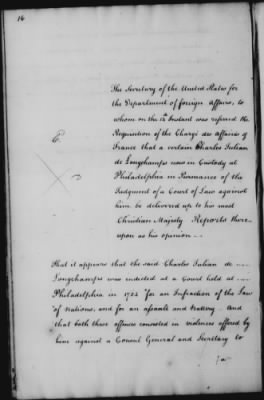 16
The Secretary of the United States for
the Department of foreign Affairs, to
whom on the 12th Instant was referred the
Requisition of the Chargé des affaires of
France that a certain Charles Julian
de Longchamps now in Custody at
Philadelphia in Pursuance of the
Judgment of a Court of Law against
him be delivered up to his most
Christian Majesty Reports there
upon as his opinion —
That it appears that the said Charles Julian de
Longchamps was indicted at a Court held at
Philadelphia in "for an Infraction of the Law
of Nations, and for an assault and battery. And
that both these offences consisted in violences offered by
him against a Consul General and Secretary to